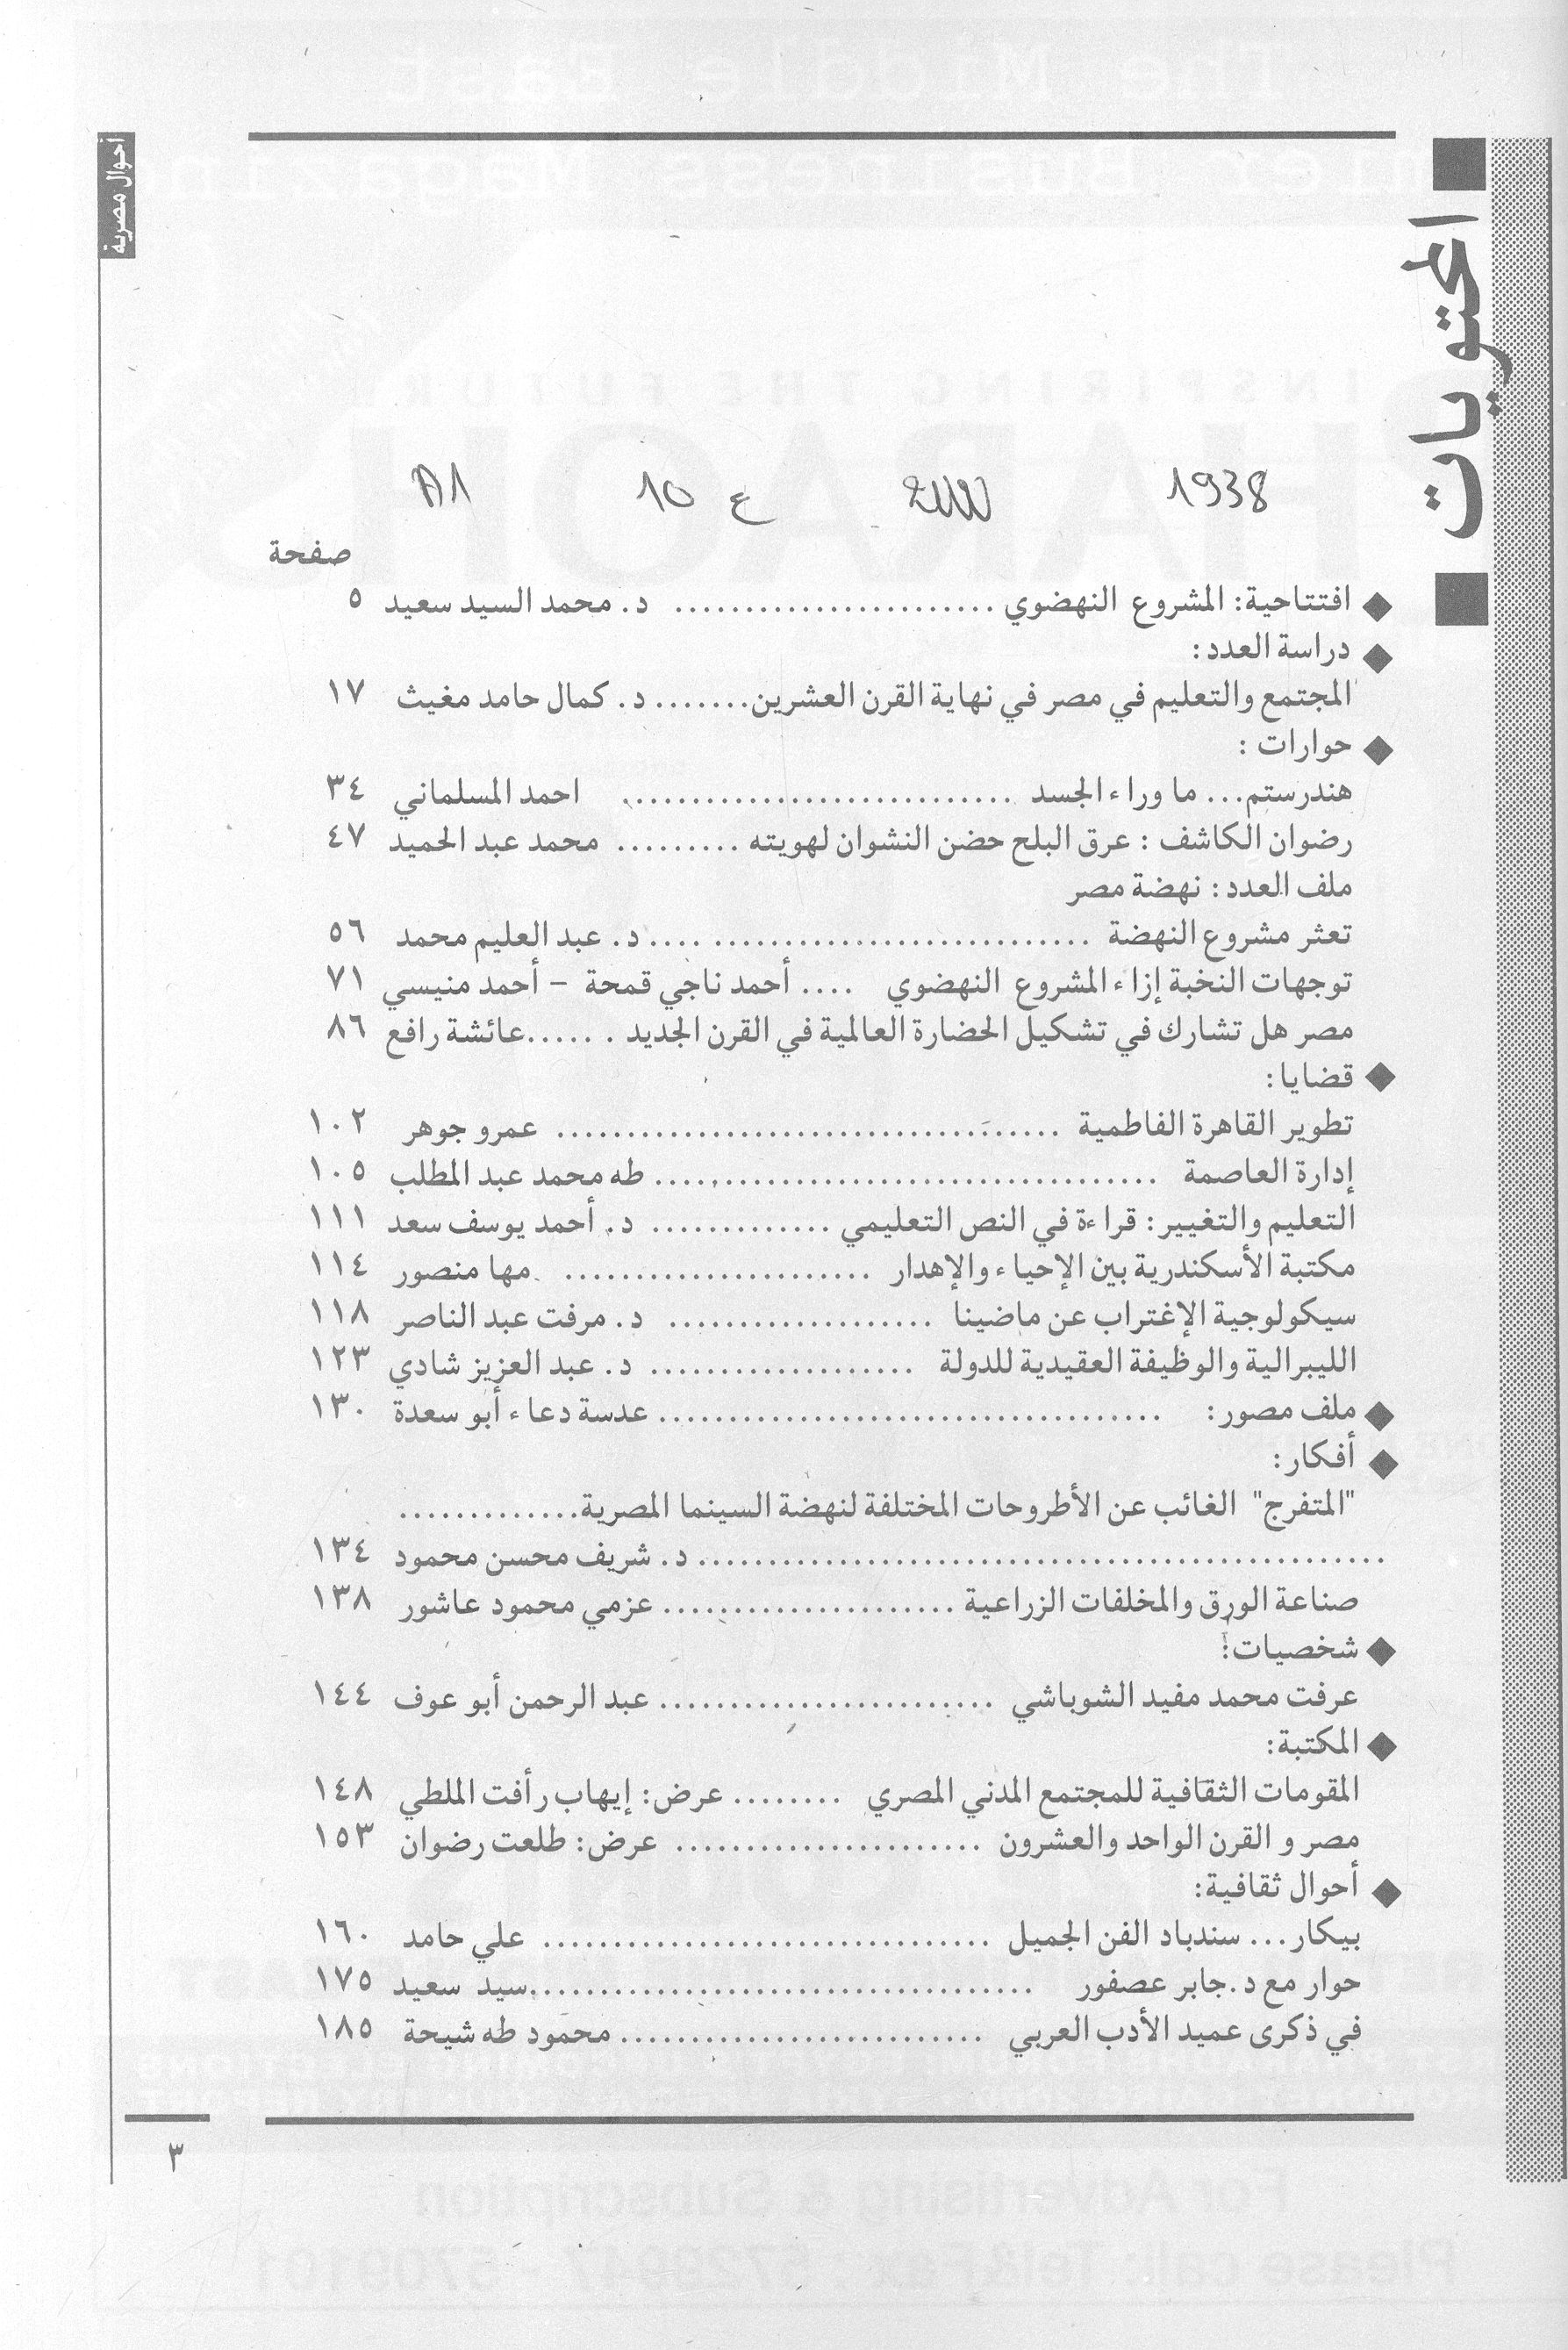 أحوال مصرية
المحتويات
1938 ع 10 A1
صفحة
افتتاحية: المشروع النهضوي ........................ د. محمد السيد سعيد ٥
دراسة العدد:
المجتمع والتعليم في مصر في نهاية القرن العشرين....... د. كمال حامد مغيث ١٧
حوارات :
هندرستم... ما وراء الجسد ............................ احمد المسلماني ٣٤
رضوان الكاشف : عرق البلح حضن النشوان لهويته ......... محمد عبد الحميد ٤٧
ملف العدد: نهضة مصر
تعثر مشروع النهضة ............................... د. عبد العليم محمد ٥٦
توجهات النخبة إزاء المشروع النهضوي .... أحمد ناجي قمحة - أحمد منيسي ٧١
مصر هل تشارك في تشكيل الحضارة العالمية في القرن الجديد . ......عائشة رافع ٨٦
قضايا:
تطوير القاهرة الفاطمية .................................... عمرو جوهر ١٠٢
إدارة العاصمة .................................... طه محمد عبد المطلب ١٠٥
التعليم والتغيير: قراءة في النص التعليمي ............. د. أحمد يوسف سعد ١١١
مكتبة الأسكندرية بين الإحياء والإهدار ...................... مها منصور ١١٤
سيكولوجية الإغتراب عن ماضينا ................... د. مرفت عبد الناصر ١١٨
الليبرالية والوظيفة العقيدية للدولة ................... د. عبد العزيز شادي ١٢٣
ملف مصور: .................................... عدسة دعاء أبو سعدة ١٣٠
أفكار:
"المتفرج" الغائب عن الأطروحات المختلفة لنهضة السينما المصرية.............
................................................. د. شريف محسن محمود ١٣٤
صناعة الورق والمخلفات الزراعية ..................... عزمي محمود عاشور ١٣٨
شخصيات:
عرفت محمد مفيد الشوباشي ........................ عبد الرحمن أبو عوف ١٤٤
المكتبة:
المقومات الثقافية للمجتمع المدني المصري ........ عرض: إيهاب رأفت الملطي ١٤٨
مصر و القرن الواحد والعشرون ...................... عرض: طلعت رضوان ١٥٣
أحوال ثقافية:
بيكار... سندباد الفن الجميل ................................ علي حامد ١٦٠
حوار مع د.جابر عصفور ....................................سيد سعيد ١٧٥
في ذكرى عميد الأدب العربي .......................... محمود طه شيحة ١٨٥
٣